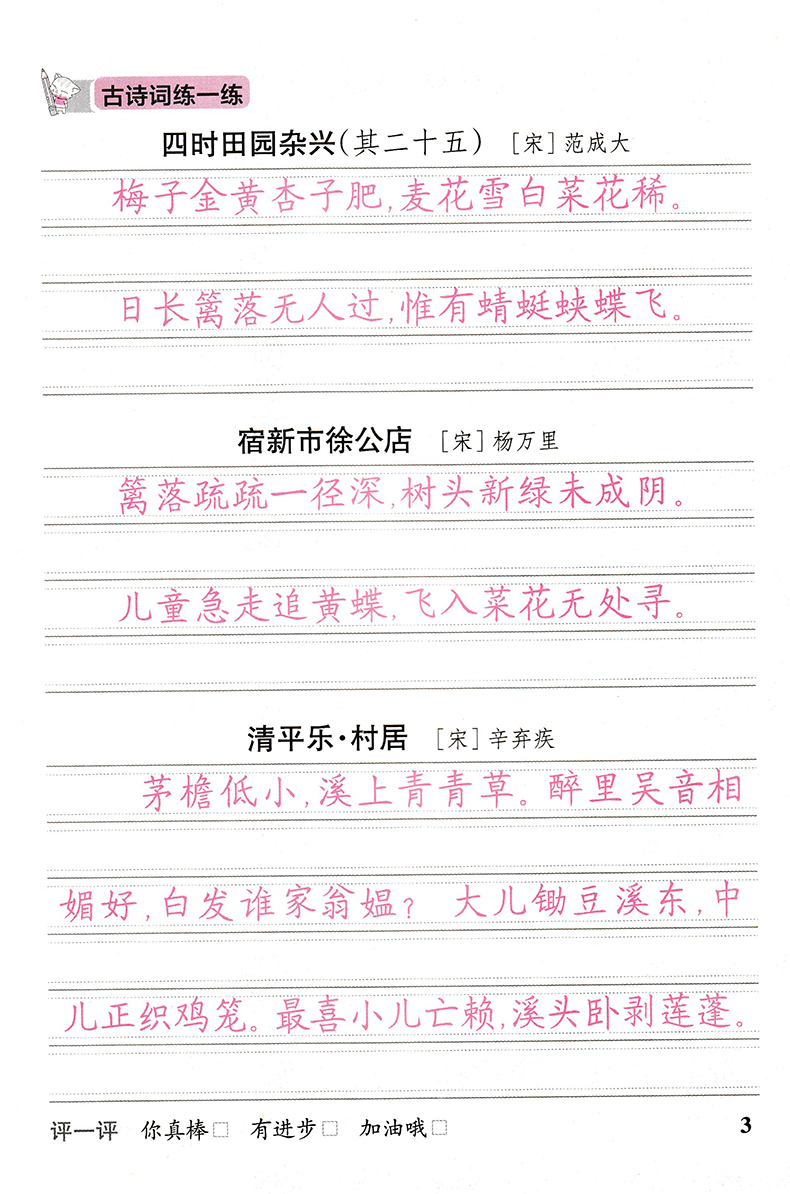 古诗词练一练
四时田园杂兴(其二十五) [宋]范成大
梅子金黄杏子肥,麦花雪白菜花稀。
日长篱落无人过,惟有蜻蜓蛱蝶飞。
宿新市徐公店 [宋]杨万里
篱落疏疏一径深,树头新绿未成阴。
儿童急走追黄蝶,飞入菜花无处寻。
清平乐·村居 [宋]辛弃疾
茅檐低小,溪上青青草。醉里吴音相
媚好,白发谁家翁媪? 大儿锄豆溪东,中
儿正织鸡笼。最喜小儿亡赖,溪头卧剥莲蓬。
评一评 你真棒□ 有进步□ 加油哦□ 3